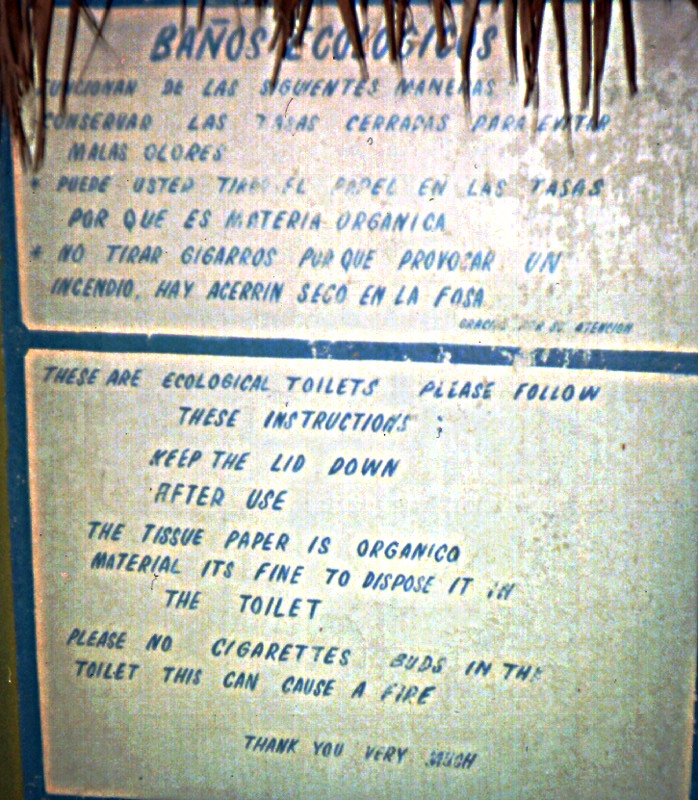 BAÑOS ECOLOGICOS
FUNCIONAN DE LAS SIGUIENTES MANERAS
CONSERVAR LAS TASAS CERRADAS PARA EVITAR
MALAS OLORES
* PUEDE USTED TIRAR EL PAPEL EN LAS TASAS
POR QUE ES MATERIA ORGANICA
* NO TIRAR GIGARROS PORQUE PROVOCAR UN
INCENDIO, HAY ACERRIN SECO EN LA FOSA
GRACIAS POR SU ATENCION
THESE ARE ECOLOGICAL TOILETS PLEASE FOLLOW
THESE INSTRUCTIONS :
KEEP THE LID DOWN
AFTER USE
THE TISSUE PAPER IS ORGANICO
MATERIAL ITS FINE TO DISPOSE IT IN
THE TOILET
PLEASE NO CIGARETTES BUDS IN THE
TOILET THIS CAN CAUSE A FIRE
THANK YOU VERY MUCH